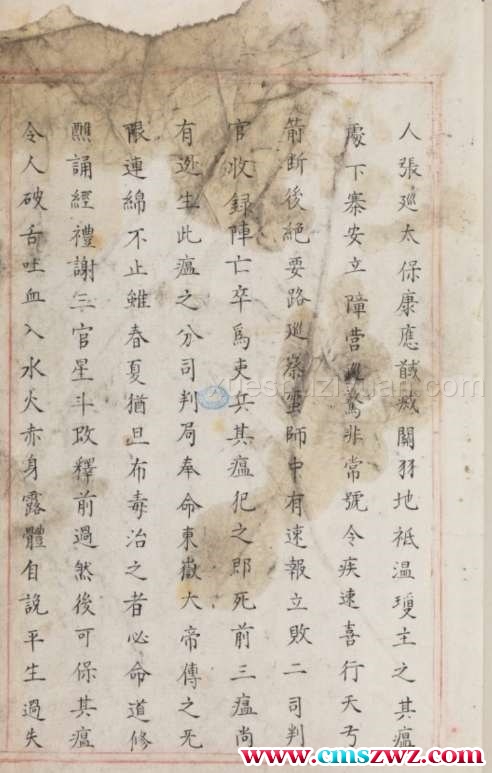 人張巡太保康應馘滅關羽地祇溫瓊主之其瘟
處下寨安立障營巡警非常號令疾速喜行天弓
箭斷後絕要路巡察蛮師中有速報立敗二司判
官收録陣亡卒爲吏兵其瘟犯之即死前三瘟尚
有逃生此瘟之分司判局奉命東嶽大帝傳之无
限連綿不止雖春夏猶旦布毒治之者必命道修
醮誦經禮謝三官星斗改釋前過然後可保其瘟
令人破舌吐血入水火赤身露體自說平生過失
www.cmszwz.com